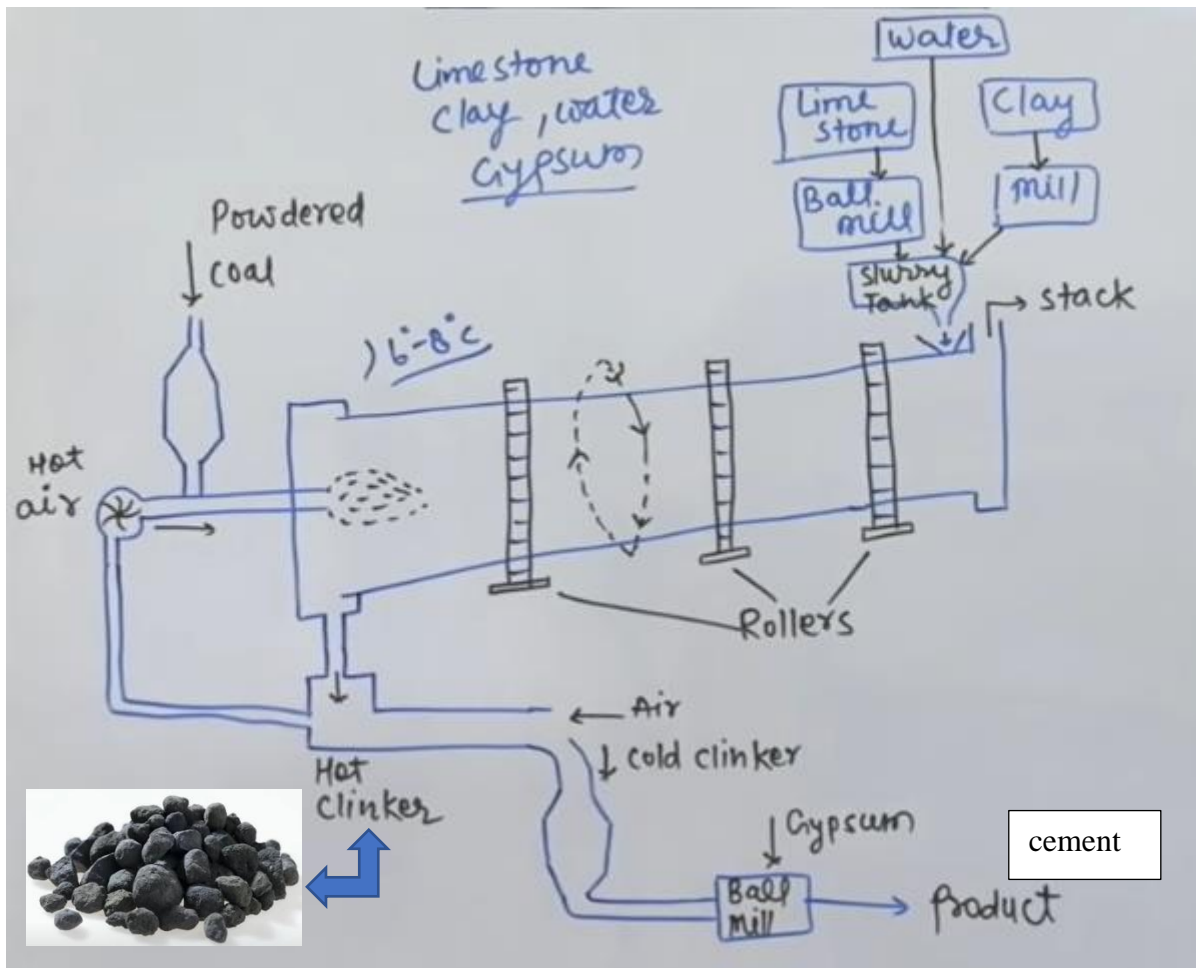 Limestone
Clay, water
Gypsum
water
Lime
stone
Clay
Ball
mill
mill
Slurry
Tank
stack
Powdered
coal
) 6°-8°C
Hot
air
Rollers
Air
Cold clinker
Hot
Clinker
Gypsum
cement
Ball
mill
product